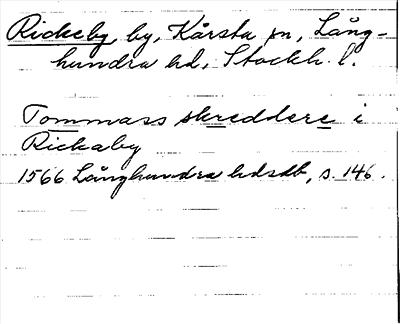 Rickeby by, Kårsta sn, Lång-
hundra hd, Stockh. l.
Tommass skreddere i
Rickaby
1566 Långhundra hdsdb, s. 146.